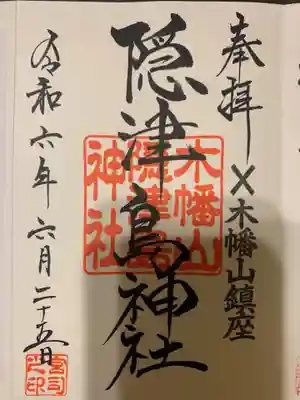 奉拝
×木幡山鎮座
隠津島神社
木幡山
隠津島
神社
令和六年六月二十五日
宮司
之印